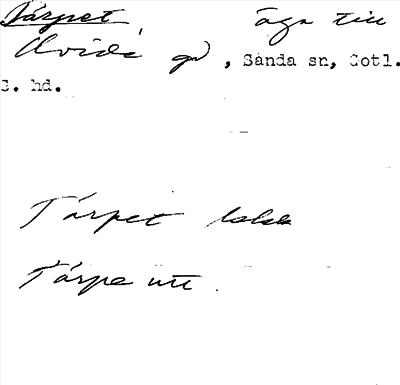 Tárpet, äga till
Ovide gd, Sanda sn, Gotl.
S. hd.
Tárpet lokal
Tárpe utt.